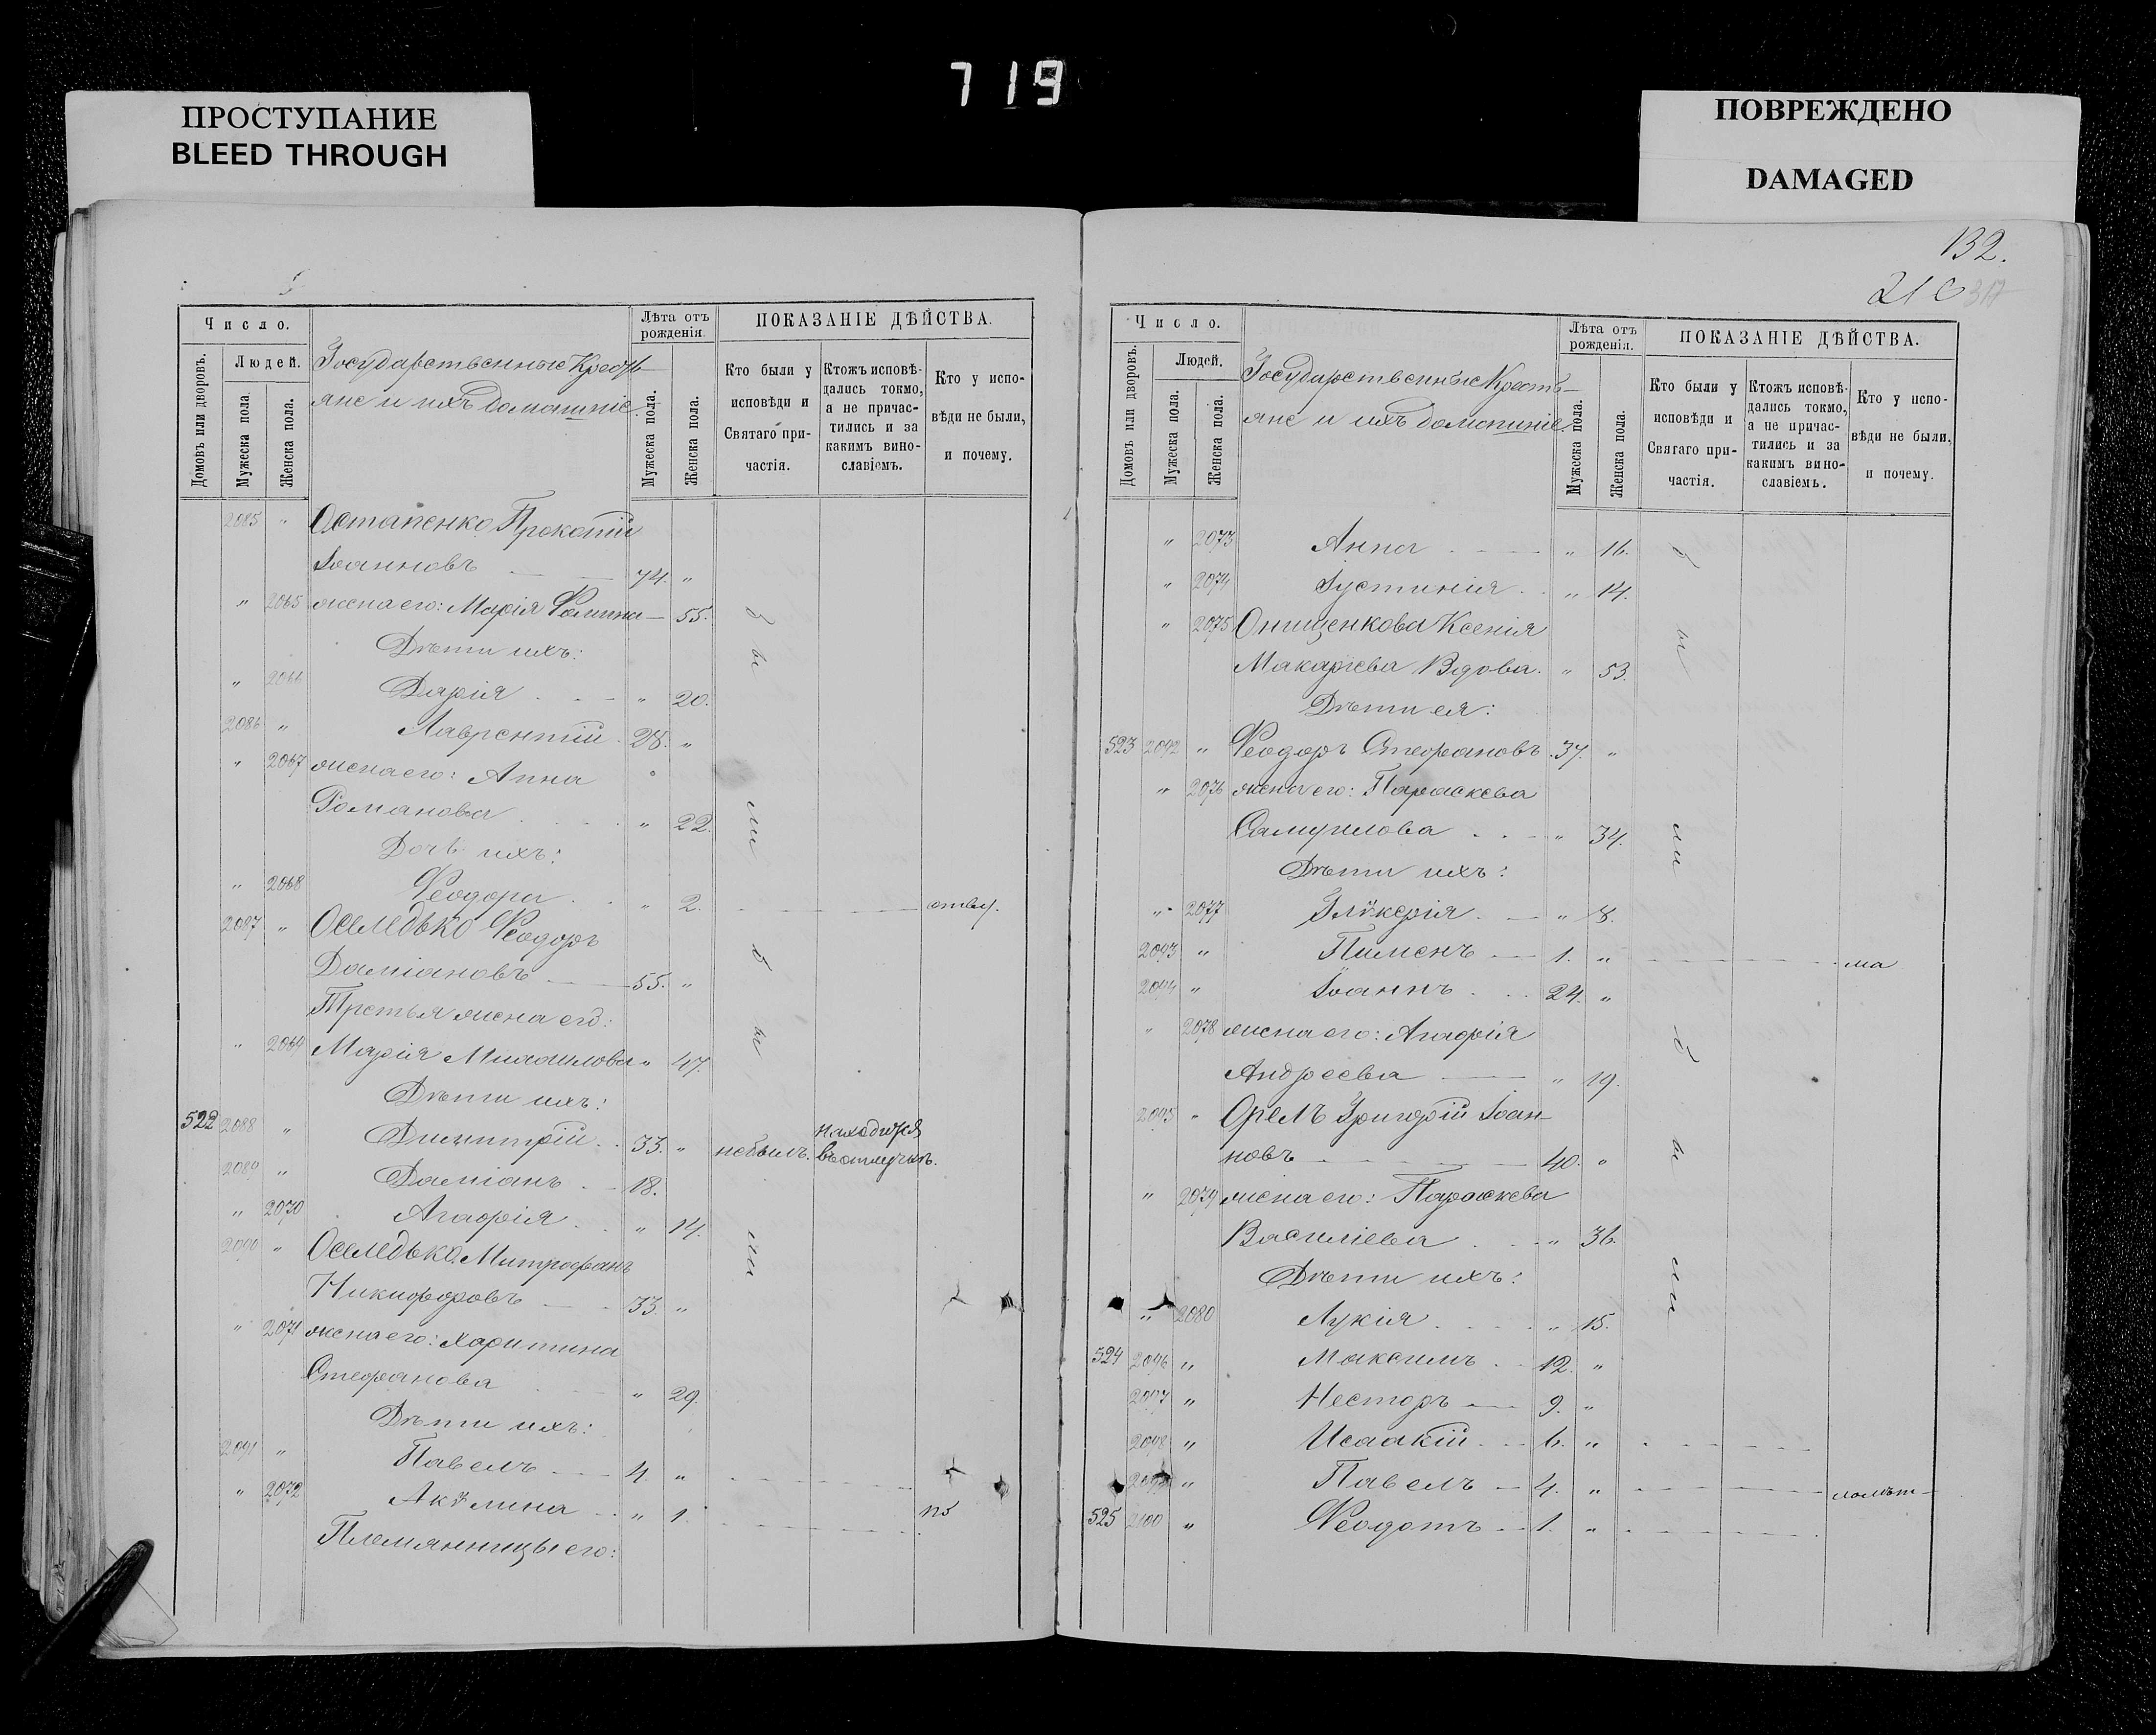 719
ПРОСТУПАНИЕ
BLEED THROUGH
ПОВРЕЖДЕНО
DAMAGED
Число.
Домовъ или дворовъ.
Людей.
Мужеска пола.
Женска пола.
Государственные Кресть-
яне и ихъ домашніе.
Лѣта отъ
рожденія.
Мужеска пола.
Женска пола.
ПОКАЗАНІЕ ДѢЙСТВА.
Кто были у
исповѣди и
Святаго при-
частія.
Ктожъ исповѣ-
дались токмо,
а не причас-
тились и за
какимъ вино-
славіемъ.
Кто у испо-
вѣди не были,
и почему.
2085 " Остапенко Прокопій
Іоанновъ 74. "
" 2065 жена его: Марія Фомина 55.
Дѣти ихъ:
" 2066 Дарія " 20.
2086 " Лаврентій 28. "
" 2067 жена его: Анна
Романова " 22.
Дочь ихъ:
" 2068 Феодора " 2.
2087 " Оселедько Феодоръ
Даміановъ 55. "
Третья жена его:
" 2069 Марія Михаилова " 47.
Дѣти ихъ:
522 2088 " Димитрій 33. " небылъ. находится
въ отлучкѣ.
2089 " Даміанъ 18.
" 2070 Агафія " 14.
2090 " Оселедько Митрофанъ
Никифоровъ 33. "
" 2071 жена его: Харитина
Стефанова " 29.
Дѣти ихъ:
2091 " Павелъ 4. "
" 2072 Акѵлина " 1. по
Племянницы его:
были
были
132.
210
317
Число.
Домовъ или дворовъ.
Людей.
Мужеска пола.
Женска пола.
Государственные Кресть-
яне и ихъ домашніе.
Лѣта отъ
рожденія.
Мужеска пола.
Женска пола.
ПОКАЗАНІЕ ДѢЙСТВА.
Кто были у
исповѣди и
Святаго при-
частія.
Ктожъ исповѣ-
дались токмо,
а не причас-
тились и за
какимъ вино-
славіемъ.
Кто у испо-
вѣди не были,
и почему.
" 2073 Анна " 16.
" 2074 Іустинія " 14.
" 2075 Онищенкова Ксенія
Макаріева Вдова. " 53.
Дѣти ея:
523 2092 " Феодоръ Стефановъ 37. "
" 2076 жена его: Параскева
Самуилова " 34.
Дѣти ихъ:
" 2077 Глѵкерія " 8.
2093 " Пименъ 1. " ма
2094 " Іоаннъ 24. "
" 2078 жена его: Агафія
Андреева " 19.
2095 " Орелъ Григорій Іоан-
новъ 40. "
" 2079 жена его: Параскева
Василіева " 36.
Дѣти ихъ:
" 2080 Лукія " 15.
524 2096 " Максимъ 12. "
2097 " Несторъ 9. "
2098 " Исаакій 6. "
2099 " Павелъ 4. " лолѣт-
525 2100 " Феодотъ 1. "
были
были